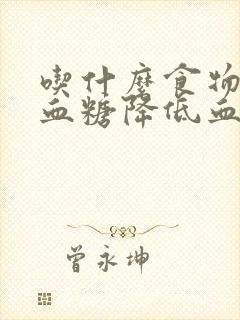 喫什麼食物
血糖降低血
曾永坤